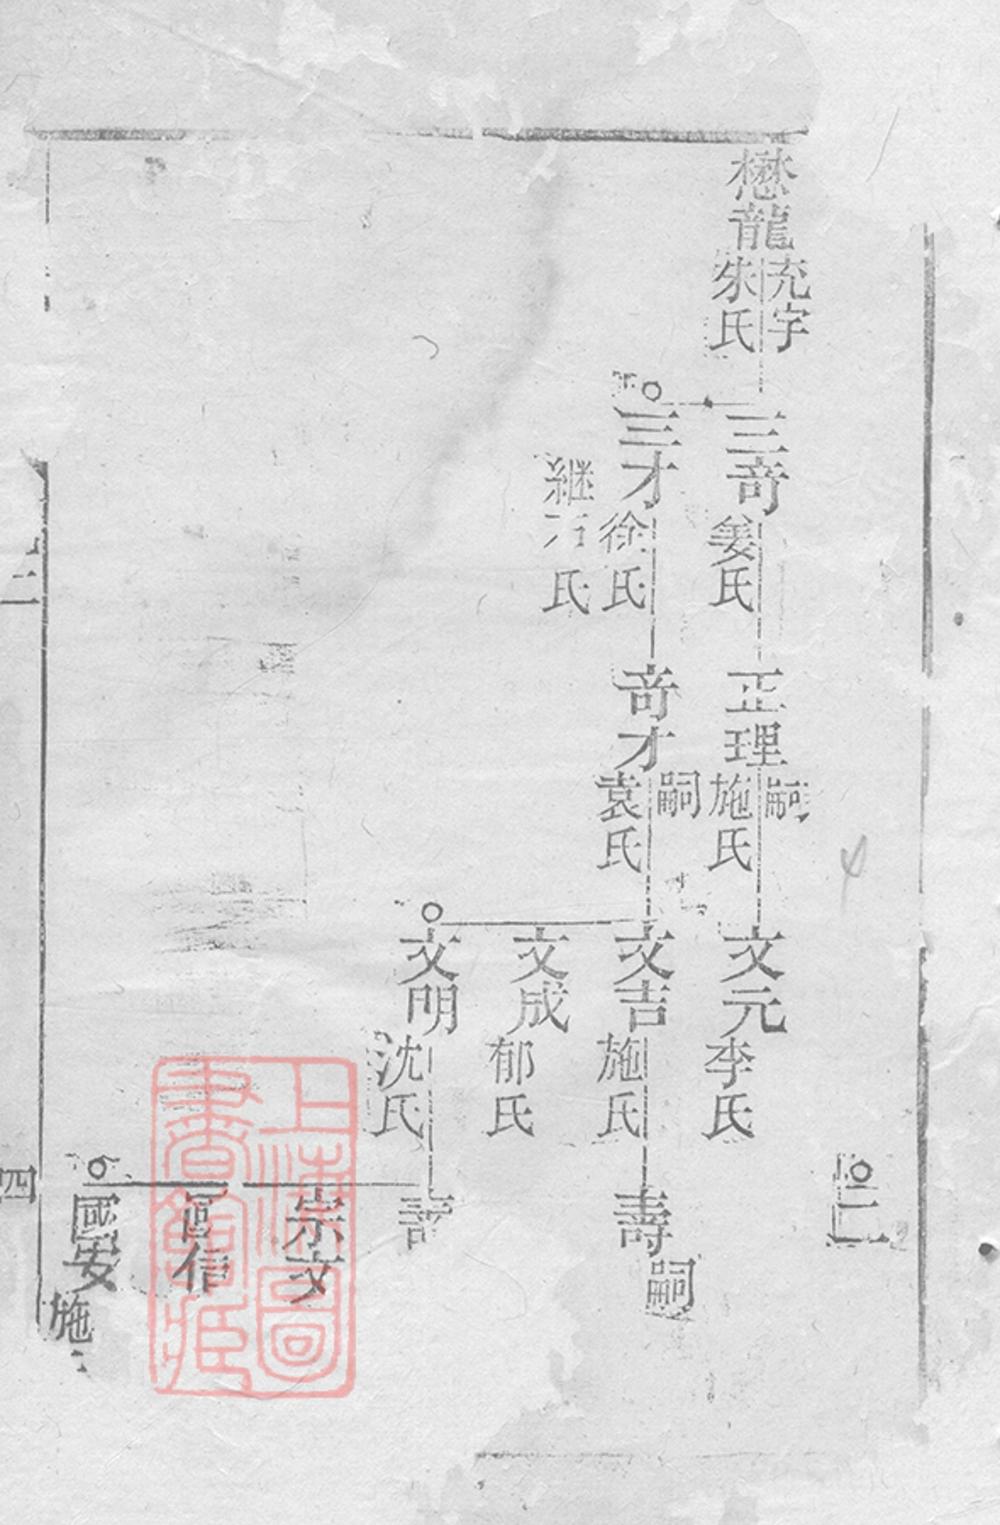 懋龍
充字
朱氏
三奇
姜氏
三才
徐氏
継 氏
正理
嗣
施氏
奇才
嗣
袁氏
文元
李氏
文吉
施氏
文成
郁氏
文明
沈氏
二
壽
嗣
壽
宗文
信
國安
施
二
四
上海圖書館藏